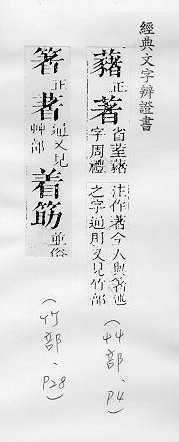 經典文字辨證書
藸正著省荎藸字周禮
注作著今人與箸述
之字通則又見竹部
(艸部、P4)
箸正著通又見艸部着筯並俗
(竹部、P28)